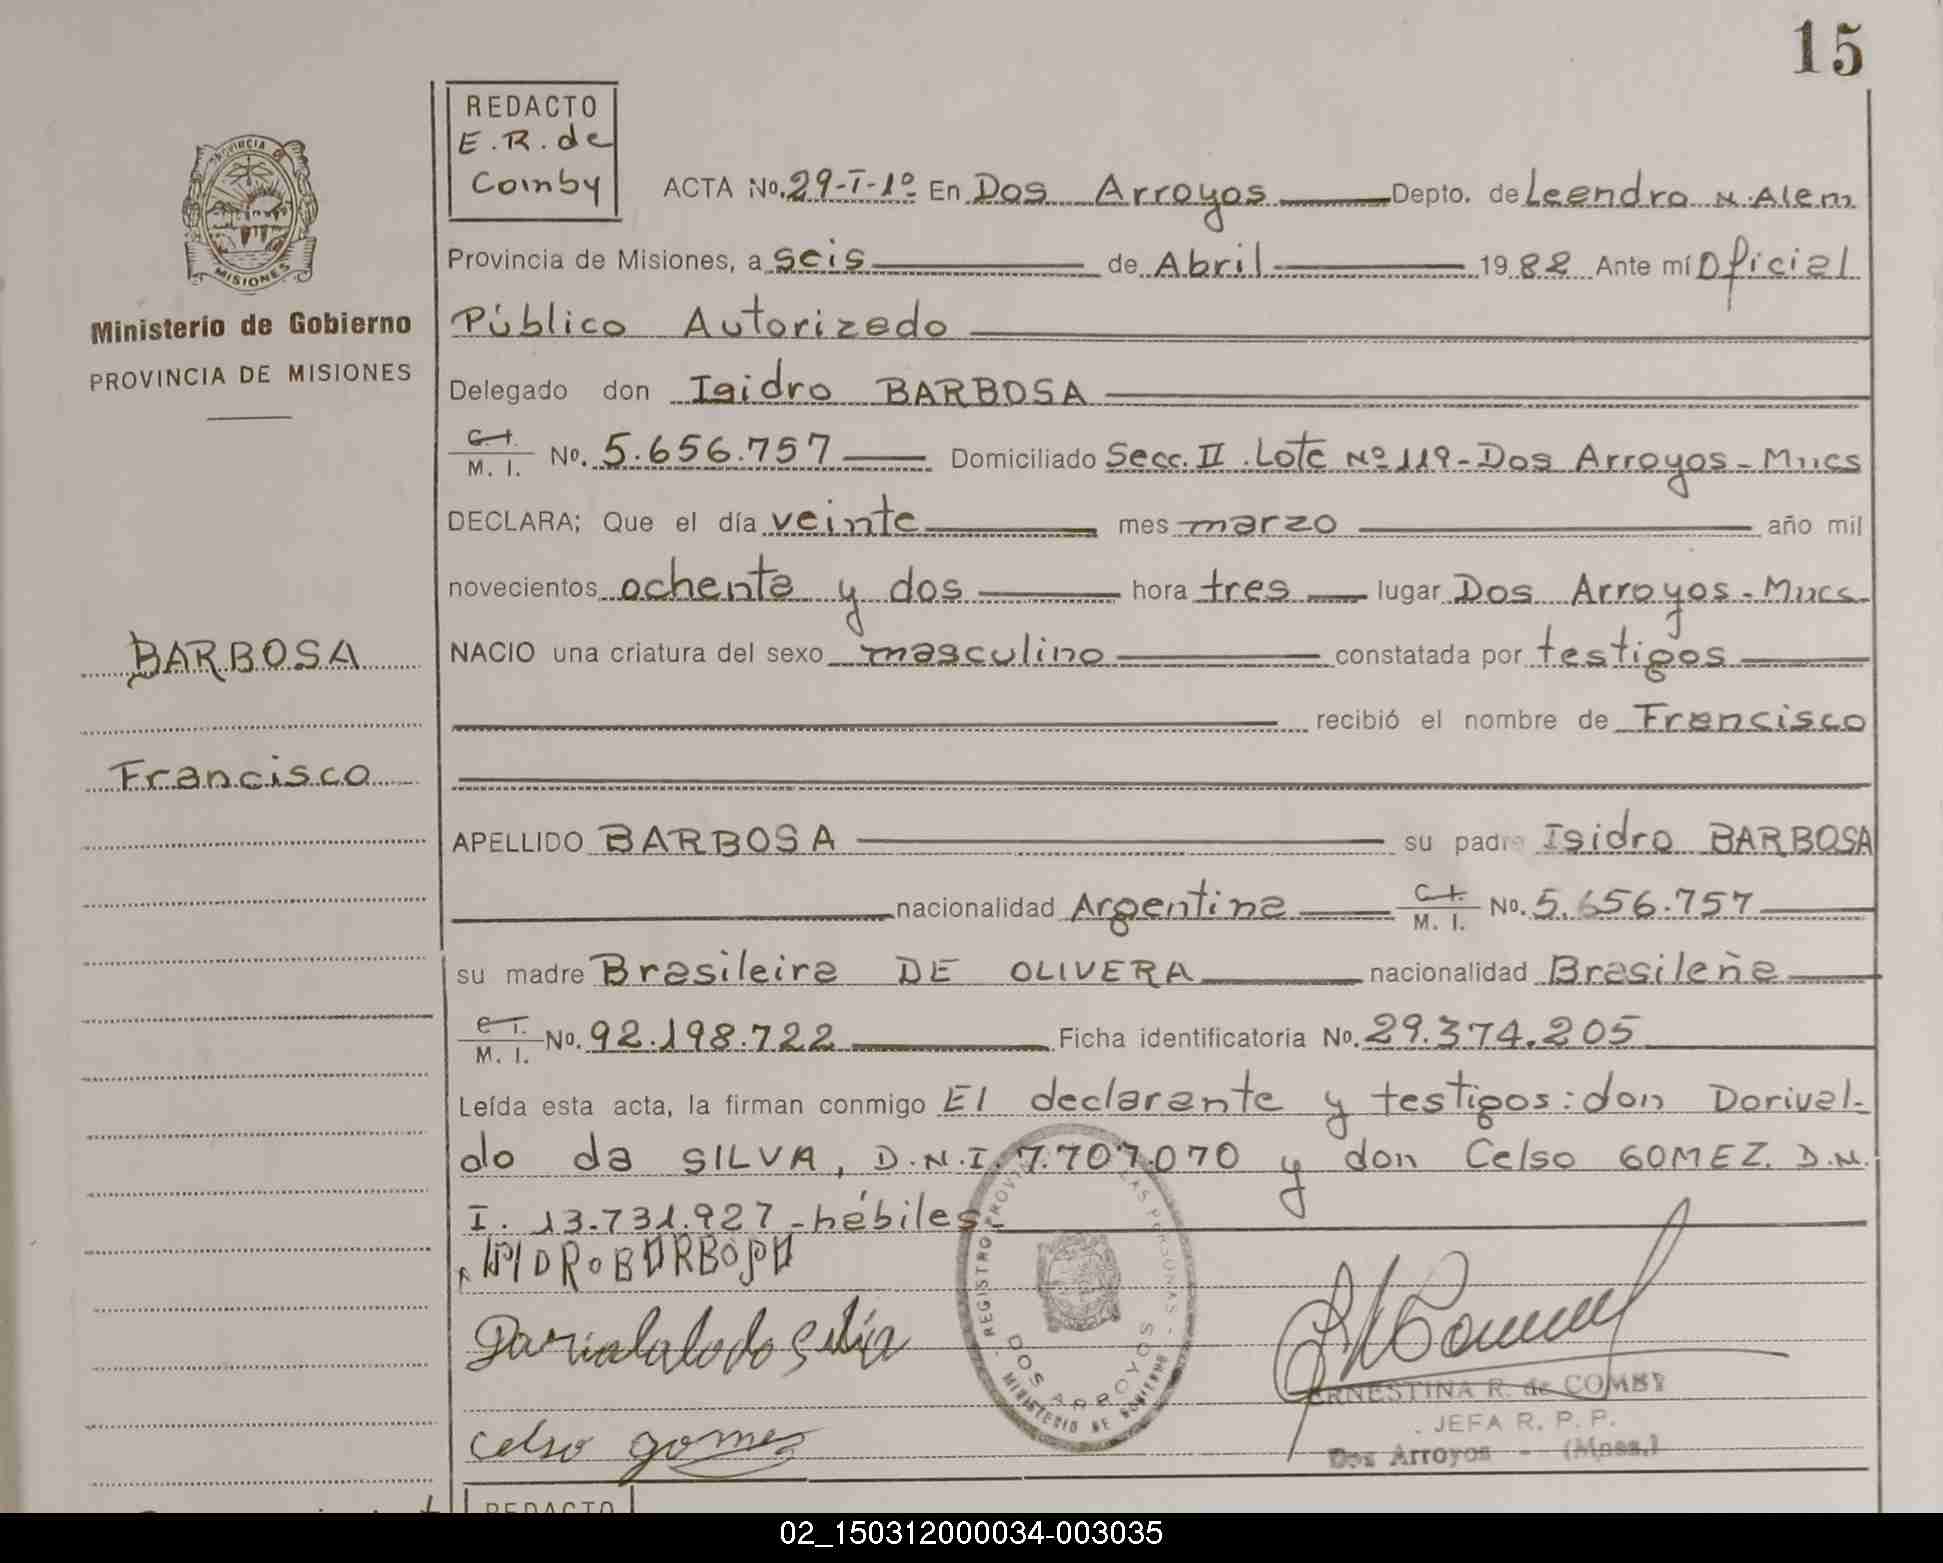 15
REDACTO
E.R. de
Comby
PROVINCIA DE
MISIONES
Ministerio de Gobierno
PROVINCIA DE MISIONES
ACTA No. 29-I-1º En Dos Arroyos Depto. de Leandro N. Alem
Provincia de Misiones, a seis de Abril 1982 Ante mí Oficial
Público Autorizado
Delegado don Isidro BARBOSA
C.I. M. I. No. 5.656.757 Domiciliado Secc. II. Lote Nº 119-Dos Arroyos-Mnes
DECLARA; Que el día veinte mes marzo año mil
novecientos ochenta y dos hora tres lugar Dos Arroyos-Mnes
BARBOSA
NACIO una criatura del sexo masculino constatada por testigos
recibió el nombre de Francisco
Francisco
APELLIDO BARBOSA su padre Isidro BARBOSA
nacionalidad Argentina C.I. M. I. No. 5.656.757
su madre Brasileira DE OLIVERA nacionalidad Brasileña
C.I. M. I. No. 92.198.722 Ficha identificatoria No. 29.374.205
Leída esta acta, la firman conmigo El declarante y testigos: don Dorival-
do da SILVA, D.N.I. 7.707.070 y don Celso GOMEZ. D.N.
I. 13.731.927 -hábiles-
REGISTRO PROVINCIAL DE LAS PERSONAS
DOS ARROYOS
MINISTERIO DE GOBIERNO
celso gomez
ERNESTINA R. de COMBY
JEFA R. P. P.
Dos Arroyos - (Mnes.)
REDACTO
02_150312000034-003035